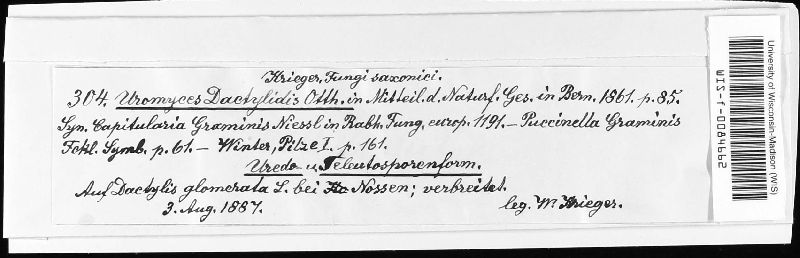 Krieger, Fungi saxonici.
304. Uromyces Dactylidis Otth. in Mitteil. d. Naturf. Ges. in Bern. 1861. p. 85.
Syn. Capitularia Graminis Niessl in Rabh. Fung. europ. 1191. – Puccinella Graminis
Fckl. Symb. p. 61 – Winter, Pilze I. p. 161.
Uredo u. Teleutosporenform.
Auf Dactylis glomerata L. bei Nossen; verbreitet.
3. Aug. 1887.
leg. W. Krieger.
University of Wisconsin-Madison (WIS)
WIS-f-0084662